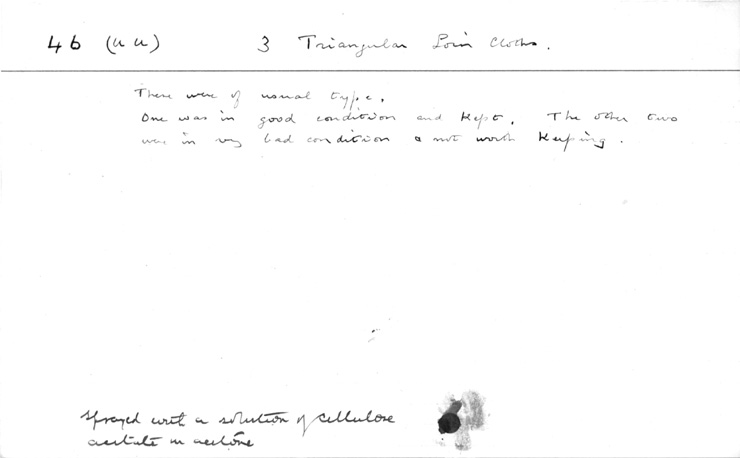 46 (uu) 3 Triangular Loin Cloths.
These were of usual type.
One was in good condition and kept. The other two
was in very bad condition & not worth keeping.
Sprayed with a solution of cellulose
acetate in acetone